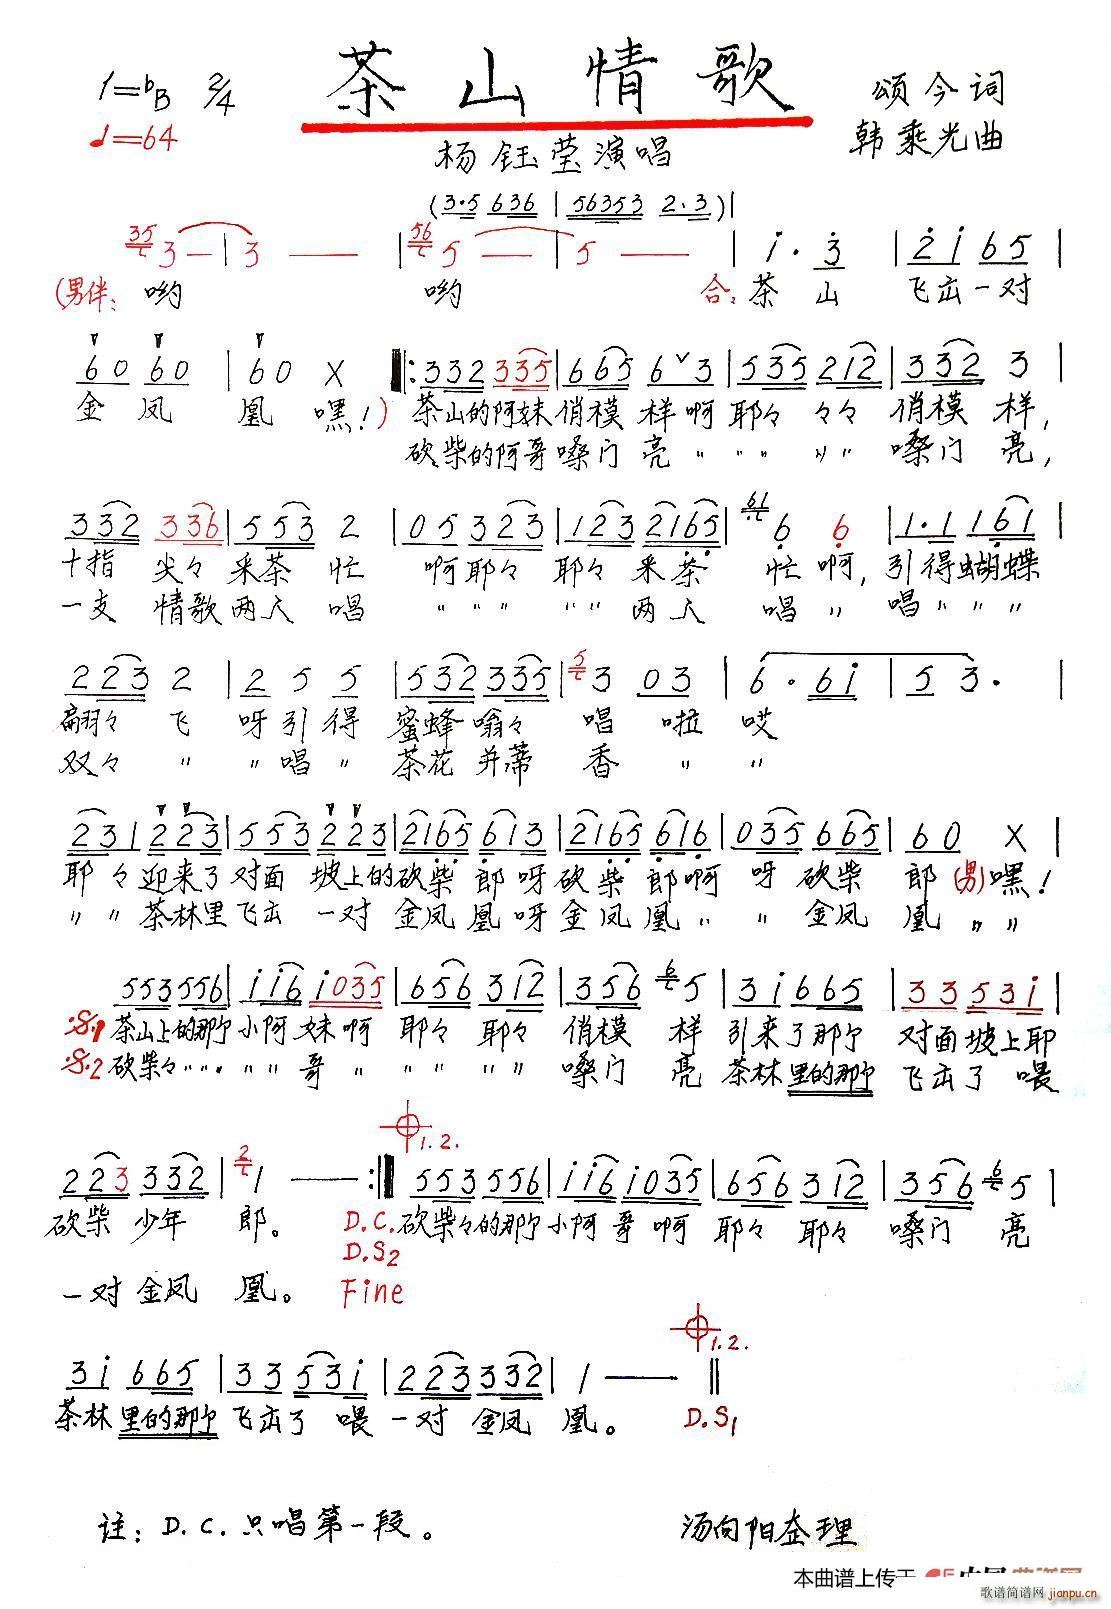 茶山情歌
1=♭B 2/4 颂今词
♩=64 韩乘光曲
杨钰莹演唱
(3·5 636 | 56353 2·3)|
35 3 — | 3 — — | 56 5 — | 5 — — | i· 3 | 2 i 6 5 |
(男伴: 哟 哟 合: 茶 山 飞出一对
60 60 | 60 X ‖: 332 335 | 665 6ˇ3 | 535 212 | 332 3 |
金 凤 凰 嘿!) 茶山的阿妹俏模样啊耶々 々々 俏模样,
砍柴的阿哥嗓门亮 〃 〃 〃 〃 〃 嗓门亮,
332 336 | 553 2 | 05 323 | 123 2165 | 61 6 6 | 1·1 161 |
十指 尖々 采茶 忙 啊耶々 耶々 采茶 忙 啊, 引得蝴蝶
一支 情歌两人 唱 〃 〃 〃 〃 〃 两人 唱 〃 唱 〃 〃 〃
223 2 | 2 5 5 | 532 335 | 5 3 03 | 6· 6i | 5 3· |
翩々 飞 呀引得 蜜蜂嗡々 唱 啦 哎
双々 〃 〃 唱 〃 茶花并蒂 香 〃 〃
23 1 223 | 553 223 | 2165 613 | 2165 616 | 035 665 | 60 X |
耶 々 迎来了对面 坡上的砍柴郎呀砍柴郎啊 呀 砍柴 郎 (男)嘿!
〃 〃 茶林里飞出 一对 金凤凰呀金凤凰 〃 〃 金凤 凰 〃 〃
553 556 | i i6 i035 | 656 312 | 356 6 5 | 3i 665 | 3 3 5 3 i |
𝄋1 茶山上的那个小阿妹啊 耶々 耶々 俏模 样 引来了那个 对面坡上耶
𝄋2 砍柴々 〃 〃 〃 〃 〃 哥 〃 〃 〃 〃 〃 嗓门 亮 茶林里的那个 飞出了 喂
1.2.
223 332 | 2 1 — :‖ 553 556 | i i6 i035 | 656 312 | 356 6 5 |
砍柴 少年 郎。 D.C. 砍柴々的那个小阿哥啊 耶々 耶々 嗓门 亮
D.S2
一对金凤 凰。 Fine
1.2.
3i 665 | 3 3 5 3 i | 223 332 | 1 — ‖
茶林里的那个 飞出了 喂 一对 金凤 凰。 D.S1
注: D.C.只唱第一段。 汤向阳整理
本曲谱上传于
歌谱简谱网 jianpu.cn